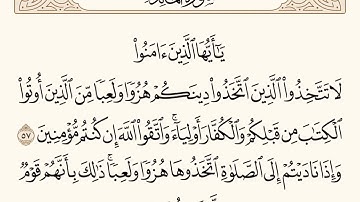 يَـٰٓأَيُّهَا ٱلَّذِينَ ءَامَنُوا۟
لَا تَتَّخِذُوا۟ ٱلَّذِينَ ٱتَّخَذُوا۟ دِينَكُمْ هُزُوًا وَلَعِبًا مِّنَ ٱلَّذِينَ أُوتُوا۟
ٱلْكِتَـٰبَ مِن قَبْلِكُمْ وَٱلْكُفَّارَ أَوْلِيَآءَ ۚ وَٱتَّقُوا۟ ٱللَّهَ إِن كُنتُم مُّؤْمِنِينَ ٥٧
وَإِذَا نَادَيْتُمْ إِلَى ٱلصَّلَوٰةِ ٱتَّخَذُوهَا هُزُوًا وَلَعِبًا ۚ ذَٰلِكَ بِأَنَّهُمْ قَوْمٌ